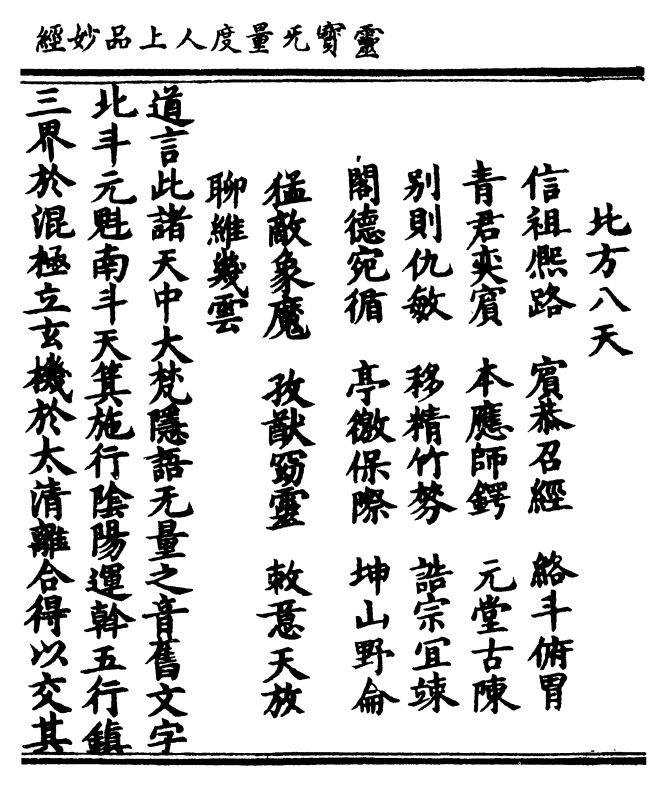 靈寶无量度人上品妙經
北方八天
信祖熈路　賓恭召經　絡斗俯胃
青君奕賓　本應師鍔　元堂古陳
别則仇敏　移精竹勞　誥宗冝竦
閣德宛循　亭徼保際　坤山野侖
猛敵象魔　孜猷窈靈　敕意天放
聊維幾雲
道言此諸天中大梵隱語无量之音舊文字
北斗元魁南斗天箕施行陰陽運幹五行鎮
三界於混極立玄機於太清離合得以交其